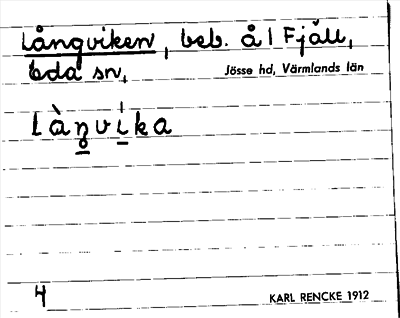 Långviken, beb. å l Fjäll,
Eda sn,
Jösse hd, Värmlands län
làŋvi̇ka
4
KARL RENCKE 1912